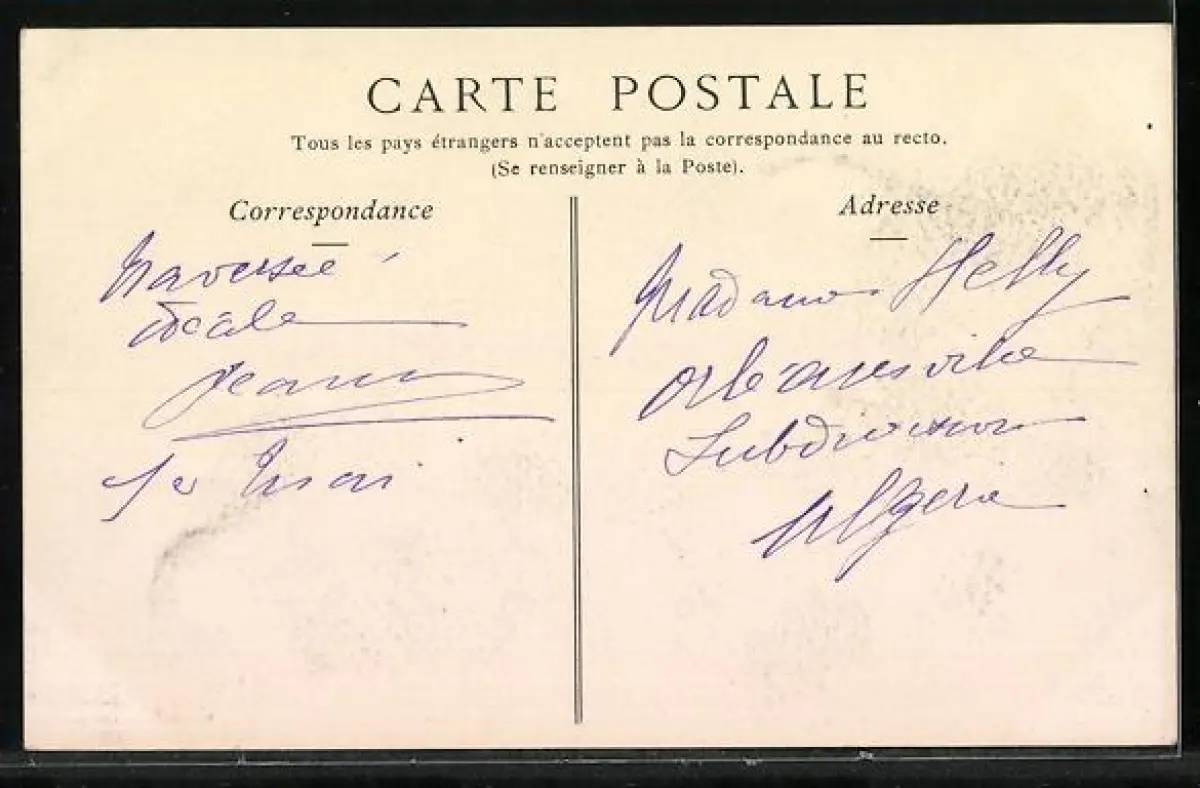 CARTE POSTALE
Tous les pays étrangers n'acceptent pas la correspondance au recto.
(Se renseigner à la Poste).
Correspondance
Adresse
Traversée
idéale
Jeanne
1er Mai
Madame Helly
Orléansville
Subdivision
Algérie